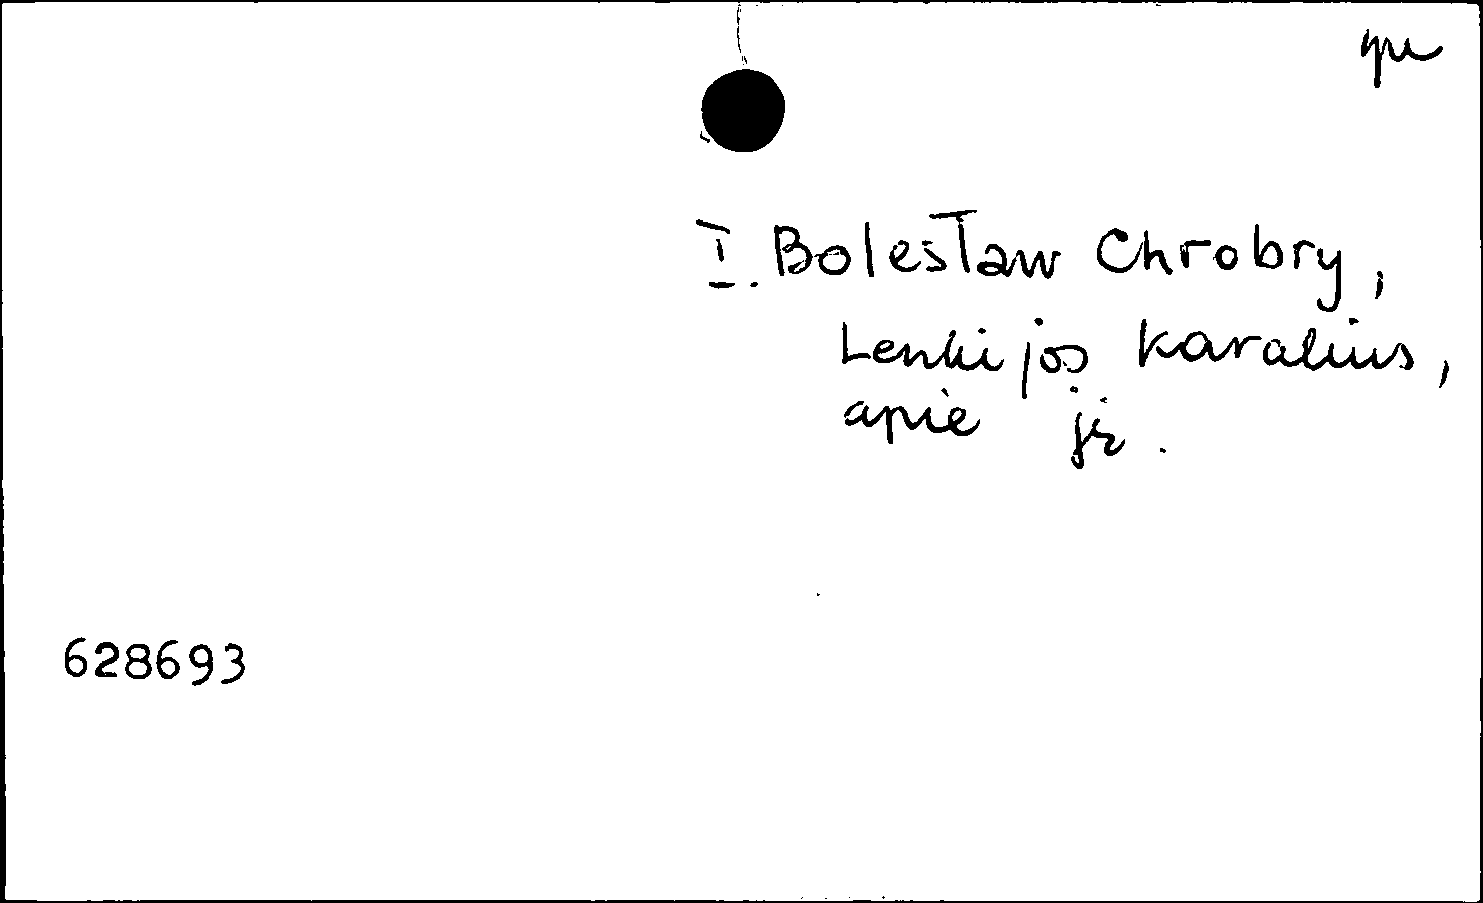 I. Bolesław Chrobry,
Lenkijos karalius,
apie jį.
628693